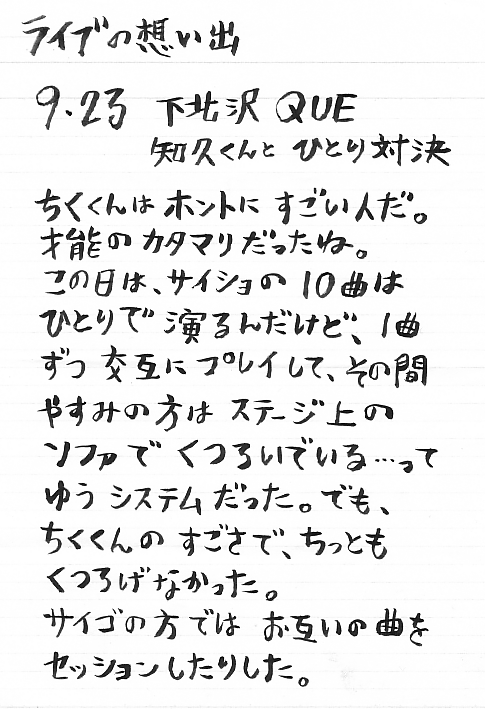 ライブの想い出
9.23 下北沢 QUE
知久くんと ひとり対決
ちくくんは ホントに すごい人だ。
才能の カタマリだったね。
この日は、サイショの 10曲は
ひとりで 演るんだけど、1曲
ずつ 交互に プレイして、その間
やすみの方は ステージ上の
ソファで くつろいでいる…って
ゆう システムだった。でも、
ちくくんの すごさで、ちっとも
くつろげなかった。
サイゴの方では お互いの曲を
セッションしたりした。